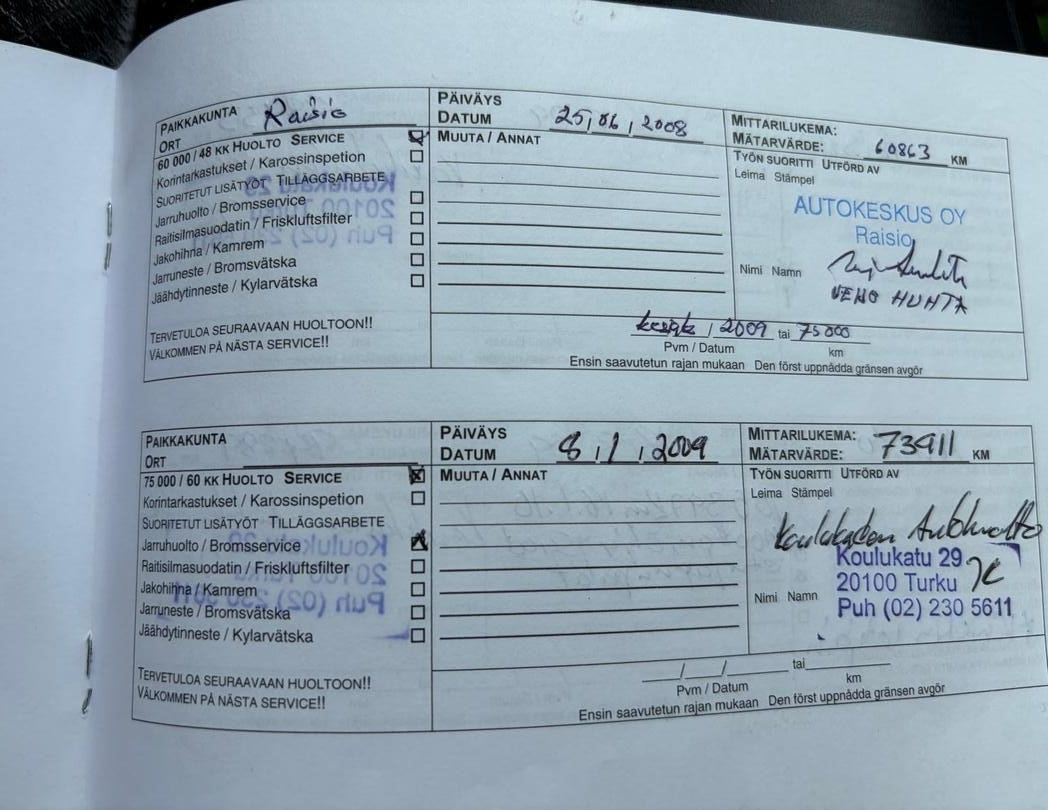 PAIKKAKUNTA Raisio
ORT
PÄIVÄYS
DATUM 25,06,2008
MITTARILUKEMA:
MÄTARVÄRDE: 60863 KM
60 000 / 48 KK HUOLTO SERVICE
Korintarkastukset / Karossinspetion
SUORITETUT LISÄTYÖT TILLÄGGSARBETE
Jarruhuolto / Bromsservice
Raitisilmasuodatin / Friskluftsfilter
Jakohihna / Kamrem
Jarruneste / Bromsvätska
Jäähdytinneste / Kylarvätska
MUUTA / ANNAT
TYÖN SUORITTI UTFÖRD AV
Leima Stämpel
AUTOKESKUS OY
Raisio
Nimi Namn
HUHTA
TERVETULOA SEURAAVAAN HUOLTOON!!
VÄLKOMMEN PÅ NÄSTA SERVICE!!
2009 tai 75 000
Pvm / Datum km
Ensin saavutetun rajan mukaan Den först uppnådda gränsen avgör
PAIKKAKUNTA
ORT
PÄIVÄYS
DATUM 8,1,2009
MITTARILUKEMA:
MÄTARVÄRDE: 73911 KM
75 000 / 60 KK HUOLTO SERVICE
Korintarkastukset / Karossinspetion
SUORITETUT LISÄTYÖT TILLÄGGSARBETE
Jarruhuolto / Bromsservice
Raitisilmasuodatin / Friskluftsfilter
Jakohihna / Kamrem
Jarruneste / Bromsvätska
Jäähdytinneste / Kylarvätska
MUUTA / ANNAT
TYÖN SUORITTI UTFÖRD AV
Leima Stämpel
Koulukadun Autohuolto
Koulukatu 29
20100 Turku
Puh (02) 230 5611
Nimi Namn
TERVETULOA SEURAAVAAN HUOLTOON!!
VÄLKOMMEN PÅ NÄSTA SERVICE!!
/ / tai
Pvm / Datum km
Ensin saavutetun rajan mukaan Den först uppnådda gränsen avgör